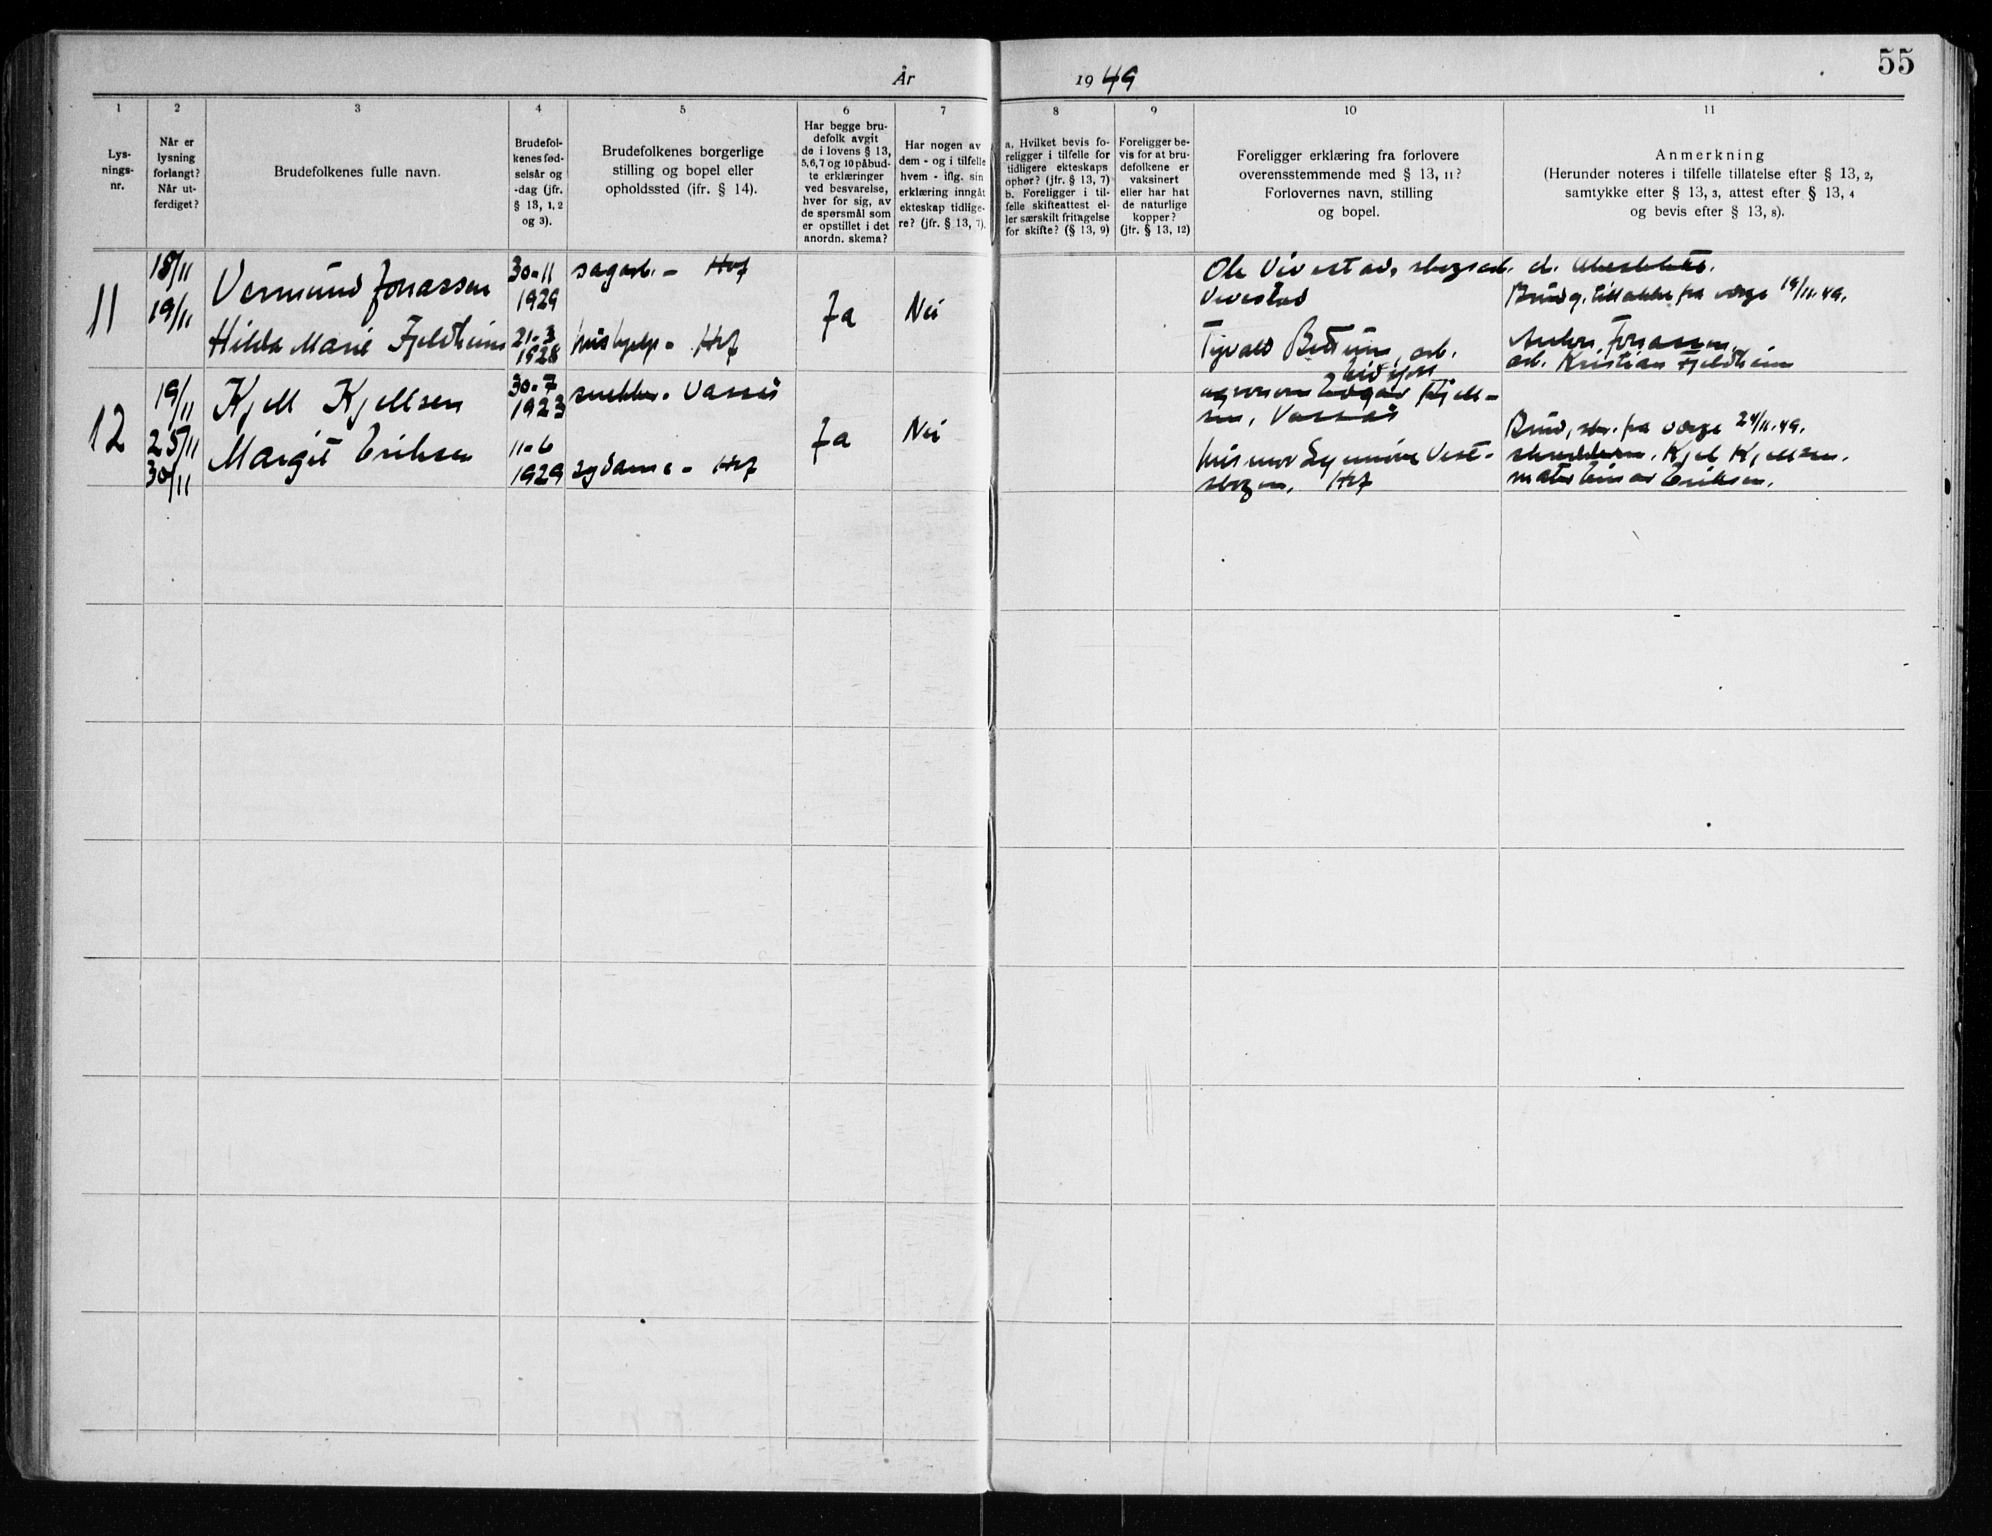 55
År 1949
1
2
3
4
5
6
7
8
9
10
11
Lys-
nings-
nr.
Når er
lysning
forlangt?
Når ut-
ferdiget?
Brudefolkenes fulle navn.
Brudefol-
kenes fød-
selsår og
-dag (jfr.
§ 13, 1, 2
og 3).
Brudefolkenes borgerlige
stilling og bopel eller
opholdssted (ifr. § 14).
Har begge bru-
defolk avgit
de i lovens § 13,
5,6,7 og 10 påbud-
te erklæringer
ved besvarelse,
hver for sig, av
de spørsmål som
er opstillet i det
anordn. skema?
Har nogen av
dem - og i tilfelle
hvem - iflg. sin
erklæring inngåt
ekteskap tidlige-
re? (jfr. § 13, 7).
a. Hvilket bevis fo-
religger i tilfelle for
tidligere ekteskaps
ophør? (jfr. § 13, 7)
b. Foreligger i til-
felle skifteattest el-
ler særskilt fritagelse
for skifte? (§ 13, 9)
Foreligger be-
vis for at bru-
defolkene er
vaksinert
eller har hat
de naturlige
kopper?
(jfr. § 13, 12)
Foreligger erklæring fra forlovere
overensstemmende med § 13, 11?
Forlovernes navn, stilling
og bopel.
Anmerkning
(Herunder noteres i tilfelle tillatelse efter § 13, 2,
samtykke efter § 13, 3, attest efter § 13, 4
og bevis efter § 13, 8).
11
18/11
19/11
Vermund Jonassen
30-11
1929
sagarb. - Hof
Hilda Marie Fjeldheim
21-3
1928
hushjelp - Hof
Ja
Nei
Ole Vivestad, skogsarb.
Vivestad
arb.
d.
Brudg. fra verge 19/11.49.
Jonassen
arb. Kristian Fjeldheim
12
19/11
25/11
30/11
Kjell Kjellsen
30-7
1923
snekker - Vassås
Margit Eriksen
11-6
1929
sydame - Hof
Ja
Nei
Kjell-
sen, Vassås
husmor Vest-
skogen, Hof
Brud, fra verge 24/11.49.
Kjel Kjellsen.
Einar Eriksen.